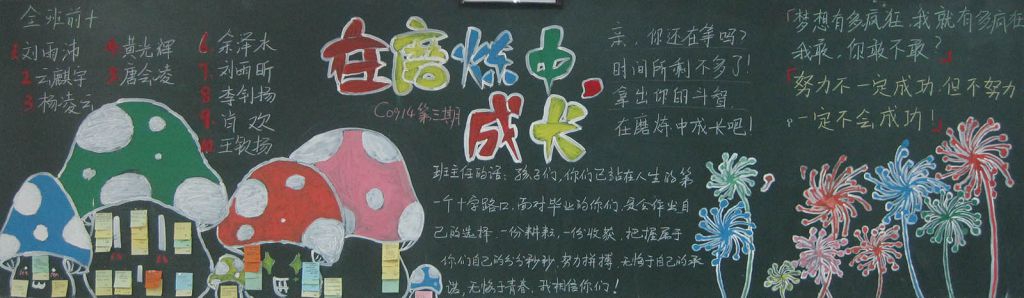 全班前十
1.刘雨沛
2.王麒宇
3.杨凌云
4.黄光辉
5.唐会凌
6.余泽水
7.刘雨昕
8.李钊扬
9.肖欢
10.王敏扬
在磨炼中,
成长
C0914第三期
亲,你还在等吗?
时间所剩不多了!
拿出你的斗智,
在磨炼中成长吧!
班主任的话:孩子们,你们已站在人生的第
一个十字路口,面对毕业的你们,是会作出自
己的选择,一份耕耘,一份收获,把握属于
你们自己的分分秒秒,努力拼搏,无悔于自己的承
诺,无悔于青春,我相信你们!
「梦想有多疯狂,我就有多疯狂
我敢,你敢不敢?」
「努力不一定成功,但不努力
一定不会成功!」